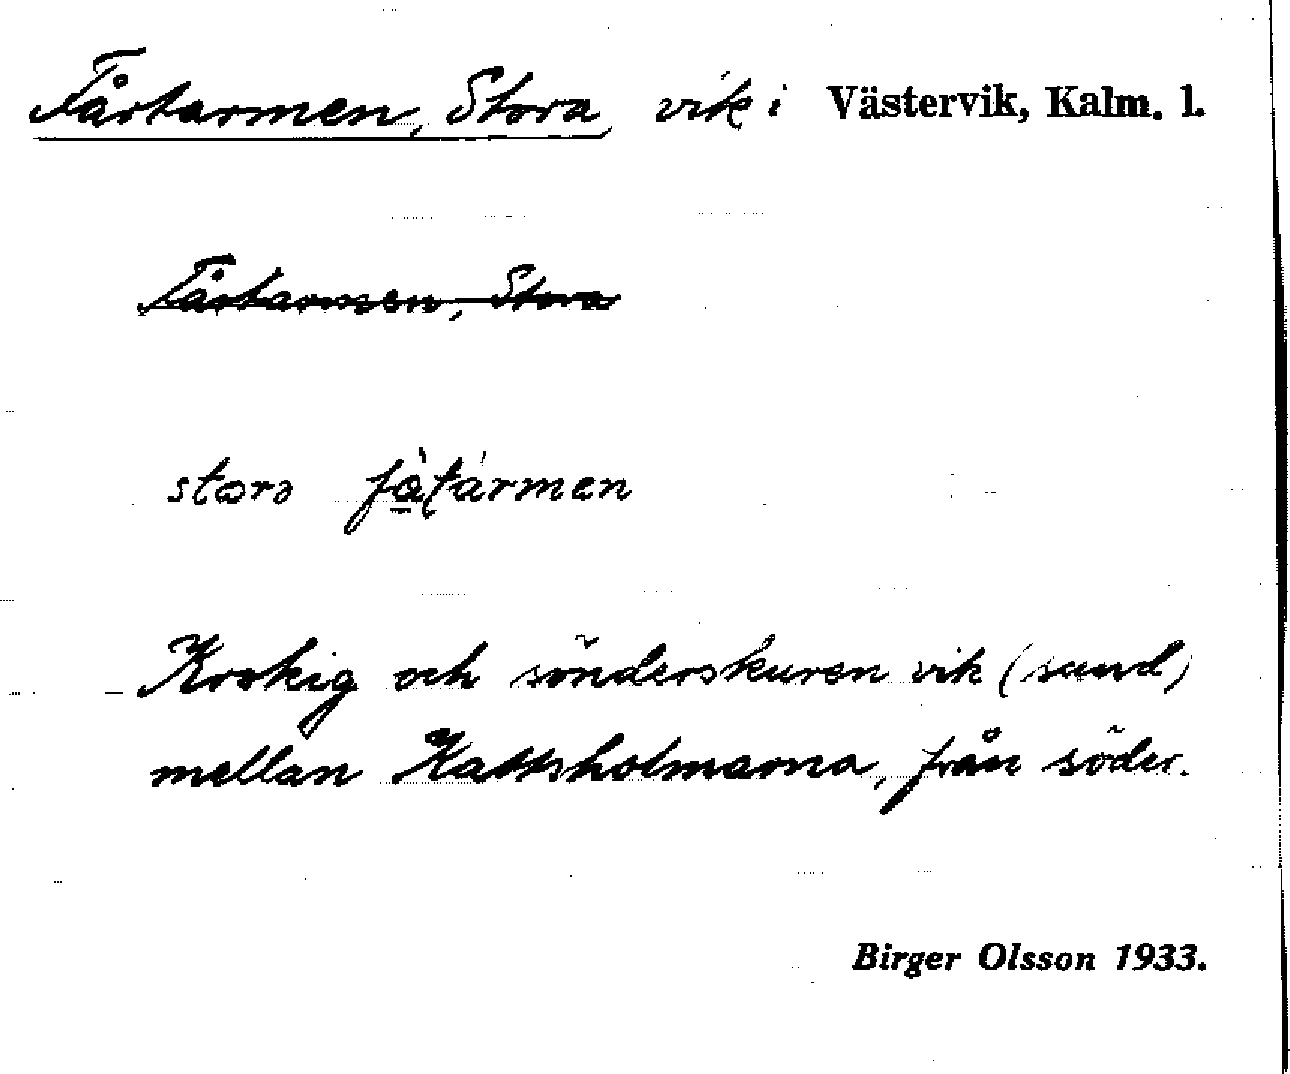 Fårtarmen, Stora vik i Västervik, Kalm. l.
Fårtarmen, Stora
stora fåtarmen
Krokig och sönderskuren vik (sund)
mellan Kattsholmarna, från söder.
Birger Olsson 1933.